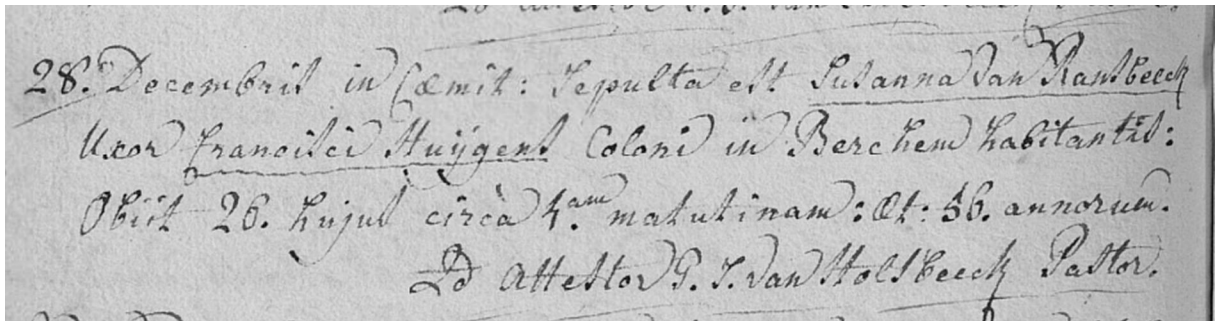 28. Decembris in Cæmit: Sepulta est Susanna Van Ransbeeck
Uxor Francisci Huÿgens Coloni in Berchem habitantis:
Obiit 26. hujus circà 4.am matutinam: æt: 56. annorum.
Qd Attestor G. J. Van Holsbeeck Pastor.